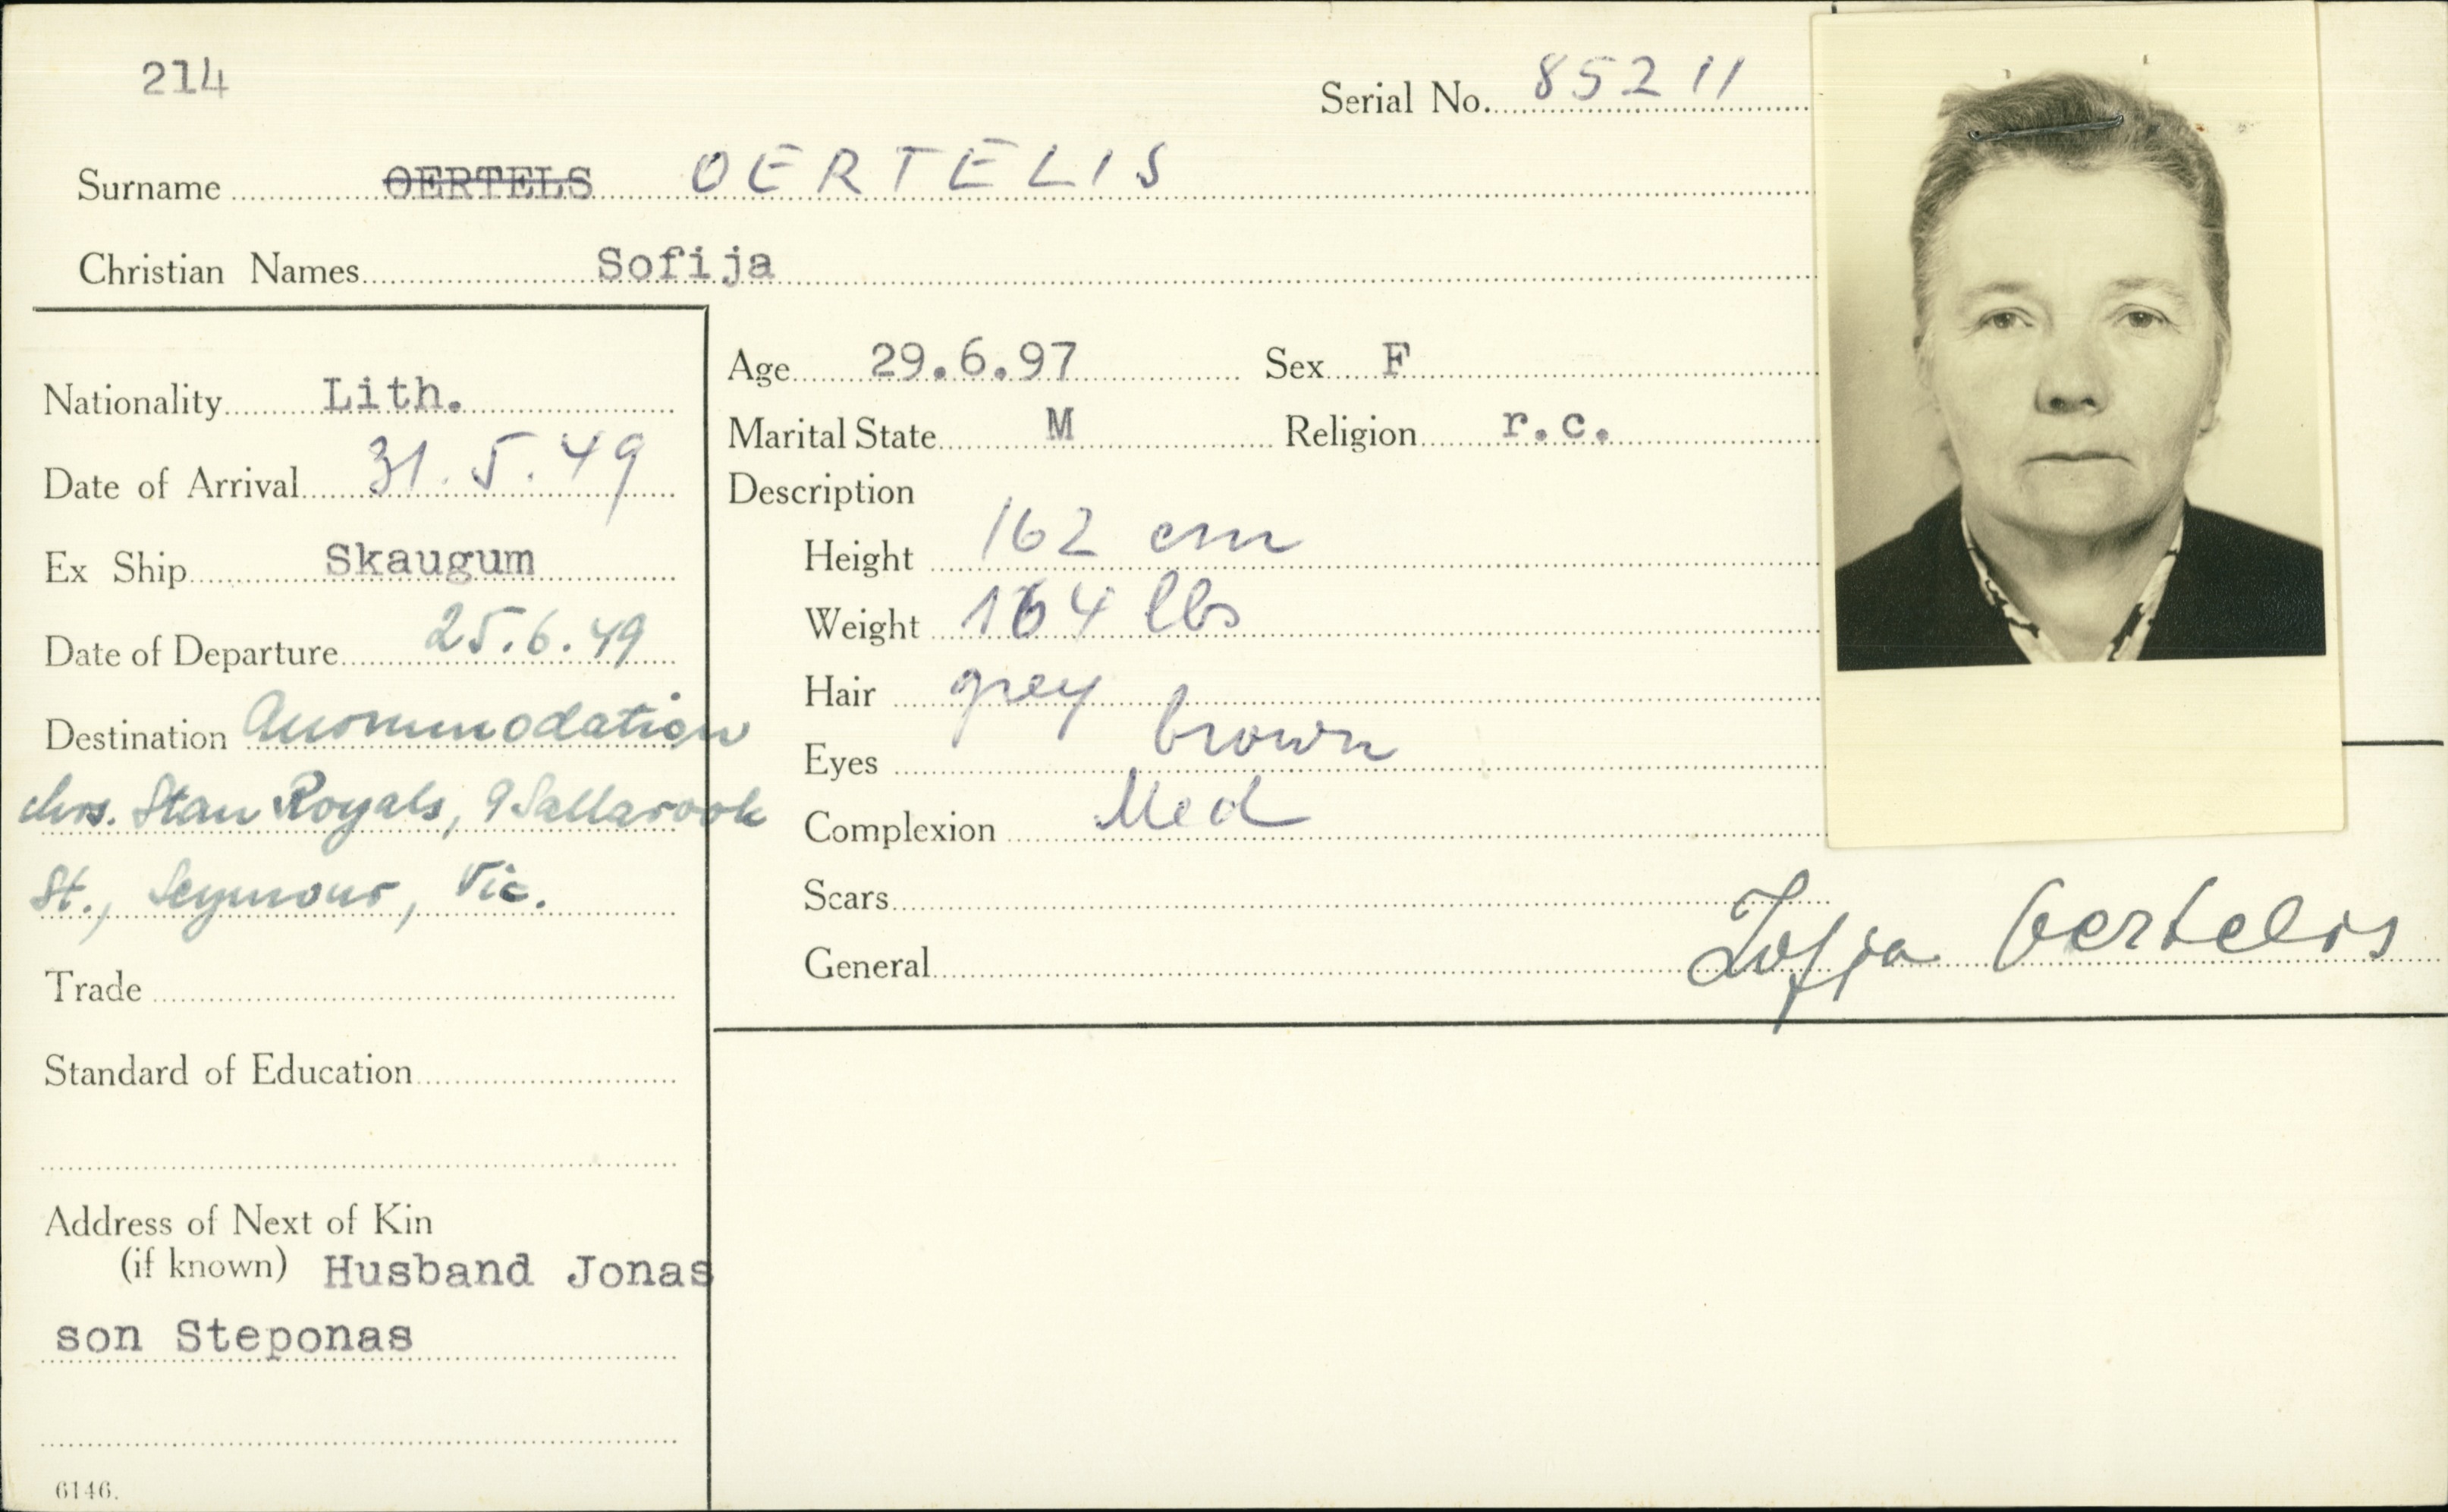 214
Serial No. 85211
Surname OERTELS OERTELIS
Christian Names Sofija
Nationality Lith.
Date of Arrival 31.5.49
Ex Ship Skaugum
Date of Departure 25.6.49
Destination Accommodation
Mrs. Stan Royals, 9 Tallarook
St., Seymour, Vic.
Trade
Standard of Education
Address of Next of Kin
(if known) Husband Jonas
son Steponas
6146.
Age 29.6.97 Sex F
Marital State M Religion r.c.
Description
Height 162 cm
Weight 164 lbs
Hair grey
Eyes brown
Complexion Med
Scars
General
Zofja Oertelis